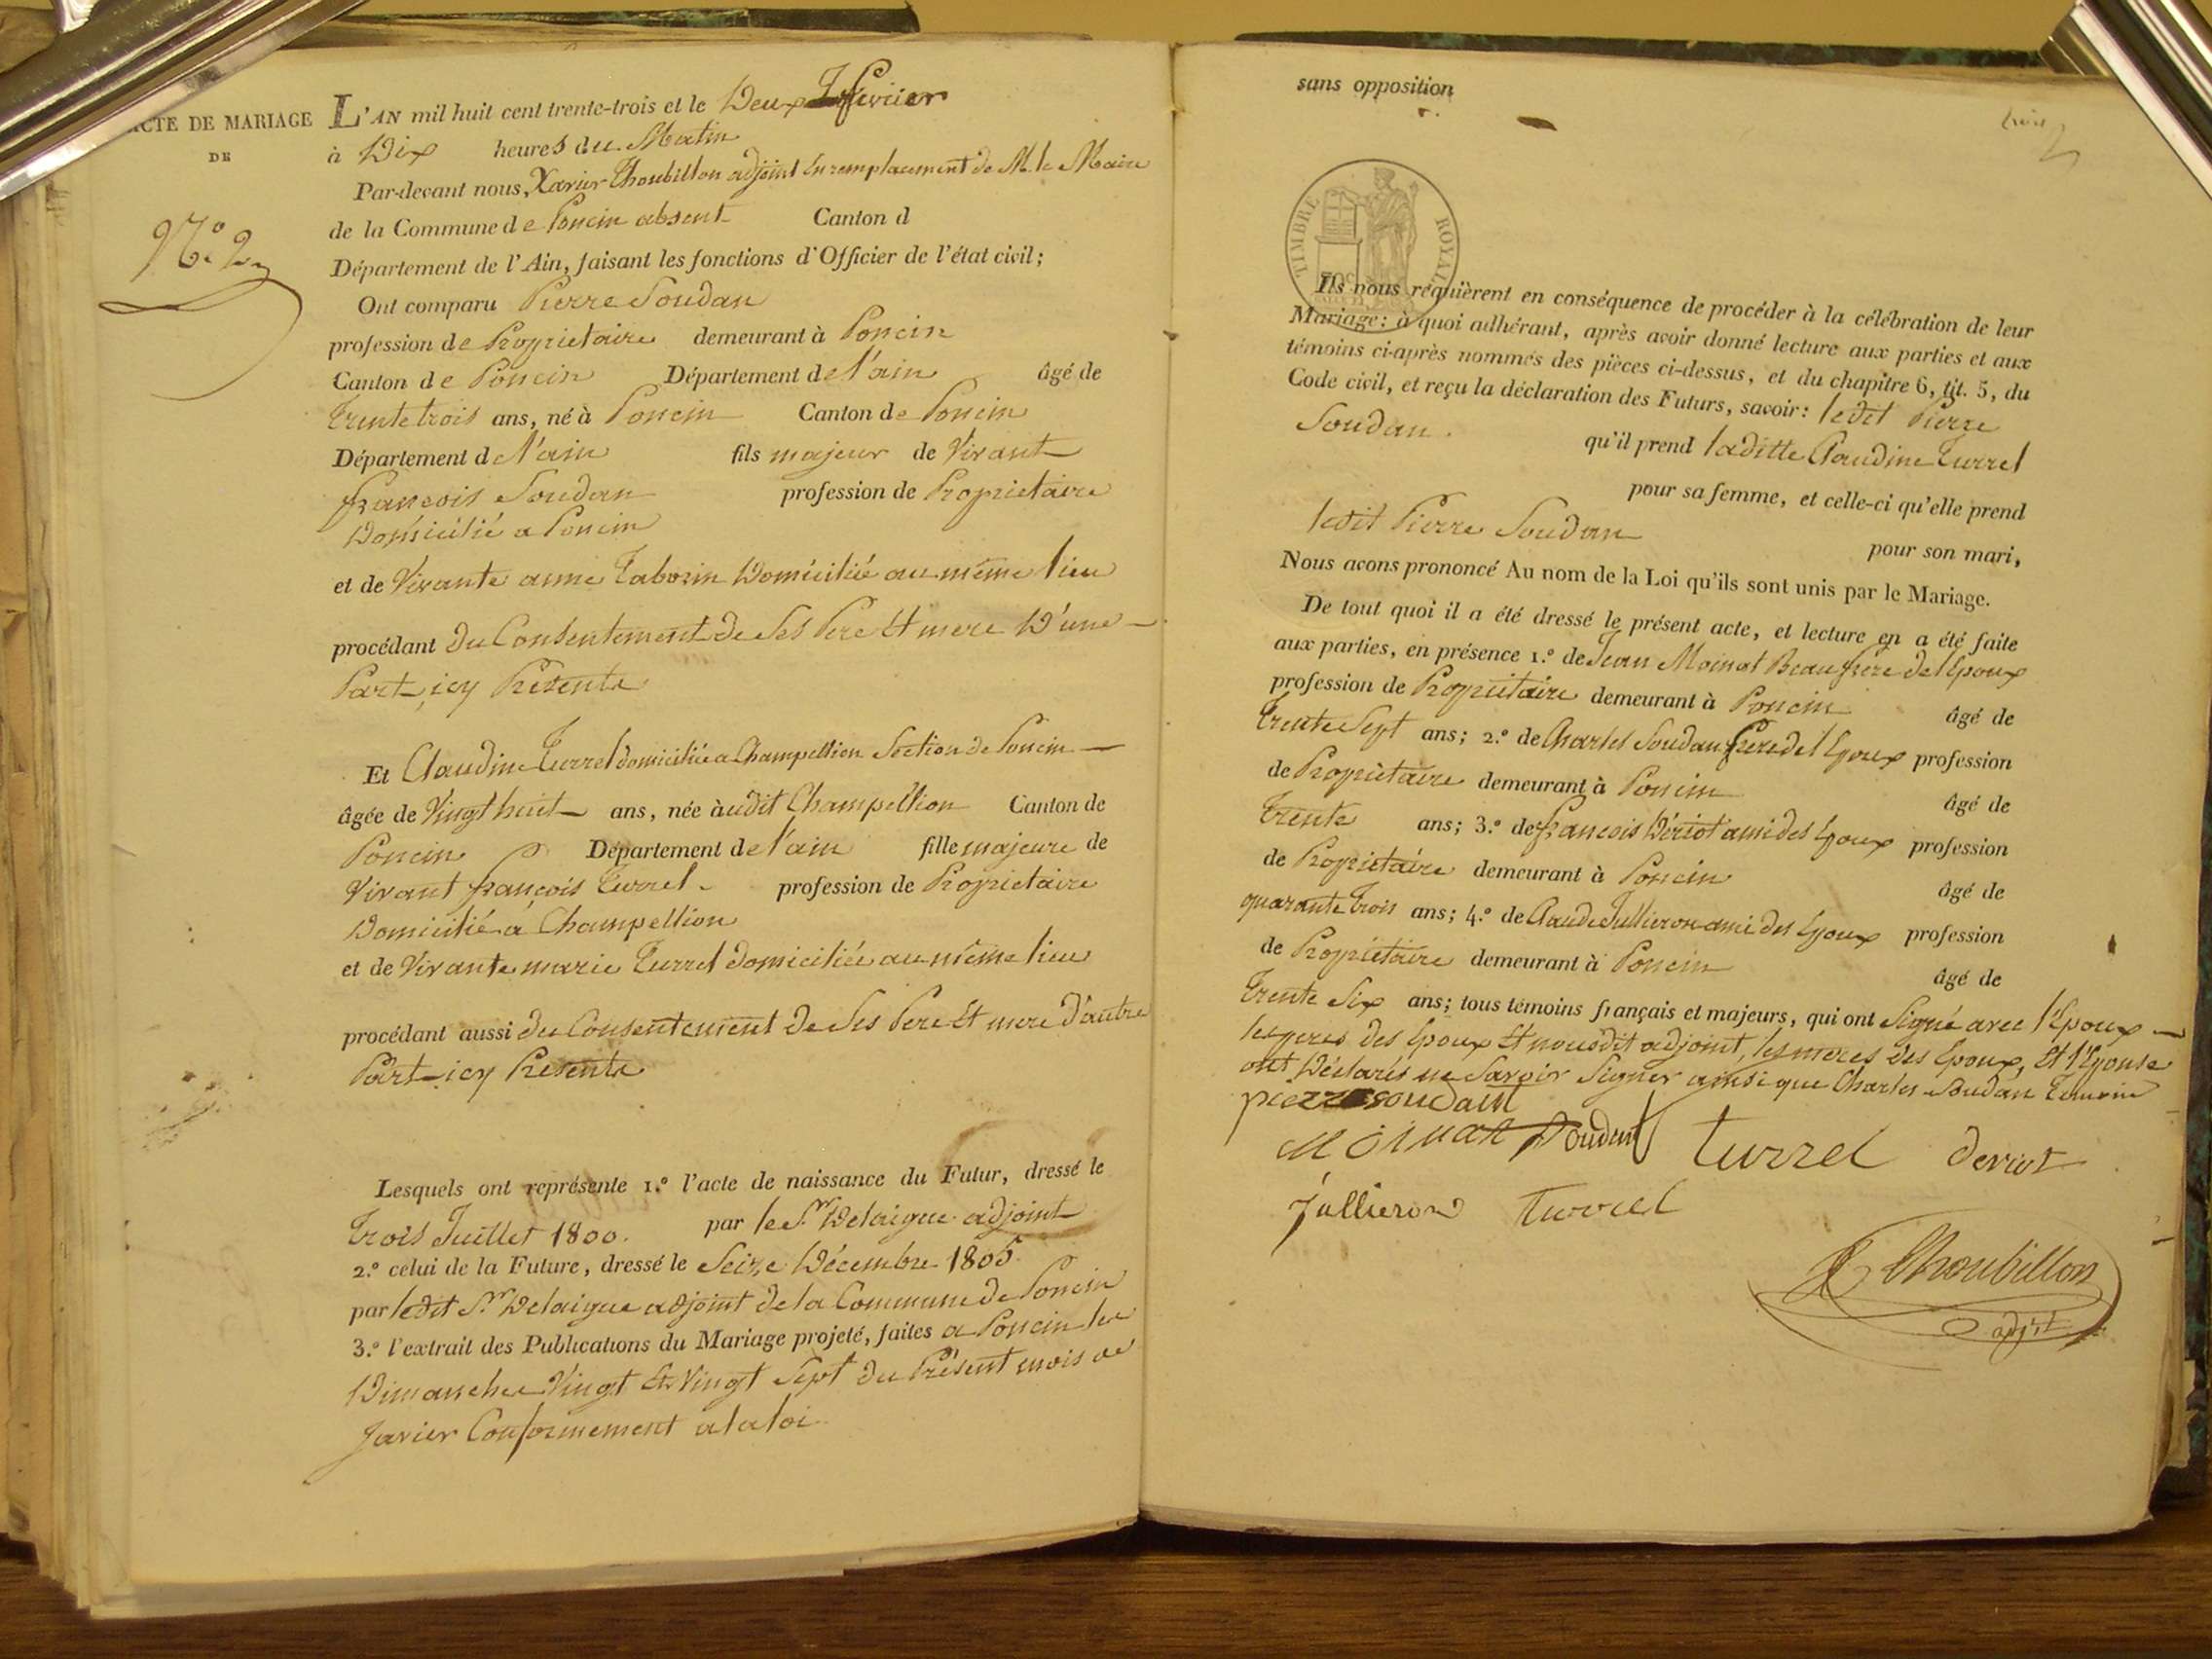 ACTE DE MARIAGE
DE
N.º 2
L'AN mil huit cent trente-trois et le Deux fevrier
à Dix heures du Matin
Par-devant nous, Xavier Thoubillon adjoint en remplacement de M. le Maire
de la Commune de Poncin absent Canton d
Département de l'Ain, faisant les fonctions d'Officier de l'état civil;
Ont comparu Pierre Soudan
profession de Proprietaire demeurant à Poncin
Canton de Poncin Département de l'ain âgé de
trente trois ans, né à Poncin Canton de Poncin
Département de l'ain fils majeur de Vivant
françois Soudan profession de Proprietaire
Domicilié a Poncin
et de Vivante anne Taborin Domiciliée au même lieu
procédant du Consentement de Ses Pere et mere D'une
Part, icy Présente
Et Claudine Turrel domiciliée a Champellion Section de Poncin
âgée de Vingt huit ans, née àudit Champellion Canton de
Poncin Département de l'ain fille majeure de
Vivant françois Turrel profession de Proprietaire
Domicilié à Champellion
et de Vivante marie Turrel domiciliée au même lieu
procédant aussi du Consentement de Ses Pere et mere D'autre
Part icy Présente
Lesquels ont représente 1.º l'acte de naissance du Futur, dressé le
trois Juillet 1800. par le S.r Delaigue adjoint
2.º celui de la Future, dressé le Seize Décembre 1805
par ledit S.r Delaigue adjoint de la Commune de Poncin
3.º l'extrait des Publications du Mariage projeté, faites a Poncin les
Dimanches Vingt et Vingt Sept du Présent mois de
Javier Conformement a la loi
sans opposition
TIMBRE ROYAL
Ils nous requièrent en conséquence de procéder à la célébration de leur
Mariage: à quoi adhérant, après avoir donné lecture aux parties et aux
témoins ci-après nommés des pièces ci-dessus, et du chapitre 6, tit. 5, du
Code civil, et reçu la déclaration des Futurs, savoir: ledit Pierre
Soudan. qu'il prend laditte Claudine Turrel
pour sa femme, et celle-ci qu'elle prend
ledit Pierre Soudan pour son mari,
Nous avons prononcé Au nom de la Loi qu'ils sont unis par le Mariage.
De tout quoi il a été dressé le présent acte, et lecture en a été faite
aux parties, en présence 1.º de Jean Moinat Beaufrère de l'époux
profession de Proprietaire demeurant à Poncin âgé de
trente Sept ans; 2.º de Charles Soudan frere de l'époux profession
de Proprietaire demeurant à Poncin âgé de
trente ans; 3.º de françois Dériot ami des époux profession
de Proprietaire demeurant à Poncin âgé de
quarante trois ans; 4.º de Claude Jullieron ami des époux profession
de Proprietaire demeurant à Poncin âgé de
trente Six ans; tous témoins français et majeurs, qui ont Signé avec l'époux
les peres des époux et nousdit adjoint, les meres des époux, et l'épouse
ont Déclarés ne Savoir Signer ainsi que Charles Soudan temoin
pierre soudant
Moinat Soudant Turrel deriot
Jullieron Turrel
Thoubillon
adj.t